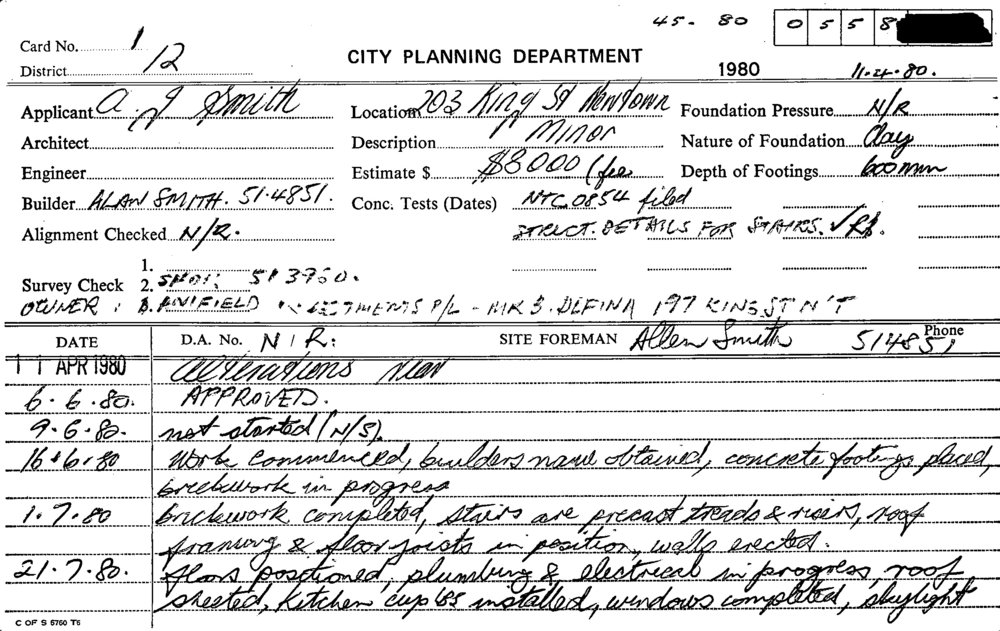 45- 80 0 5 5 8
Card No. 1
District 12
CITY PLANNING DEPARTMENT
1980 11.4.80.
Applicant A. J Smith Location 203 King St Newtown Foundation Pressure N/R
Architect Description Minor Nature of Foundation Clay
Engineer Estimate $ $8000 (fee Depth of Footings 600mm
Builder ALAN SMITH. 51.4851. Conc. Tests (Dates) NTC 0854 filed
Alignment Checked N/R. STRUCT. DETAILS FOR STAIRS. ✓
1.
Survey Check 2. SHOP: 513960.
OWNER: P/L - MR B. DEFINA 197 KING ST N'T
DATE D.A. No. N/R: SITE FOREMAN Allen Smith Phone 514851
11 APR 1980 Alterations
6.6.80. APPROVED.
9.6.80. not started (N/S).
16.6.80 Work commenced, builders name obtained, concrete footings placed,
brickwork in progress
1.7.80 brickwork completed, stairs are precast treads & risers, roof
framing & floor joists in position, walls erected.
21.7.80. floors positioned, plumbing & electrical in progress, roof
sheeted, kitchen cup'bs installed, windows completed, skylight
C OF S 5760 T5